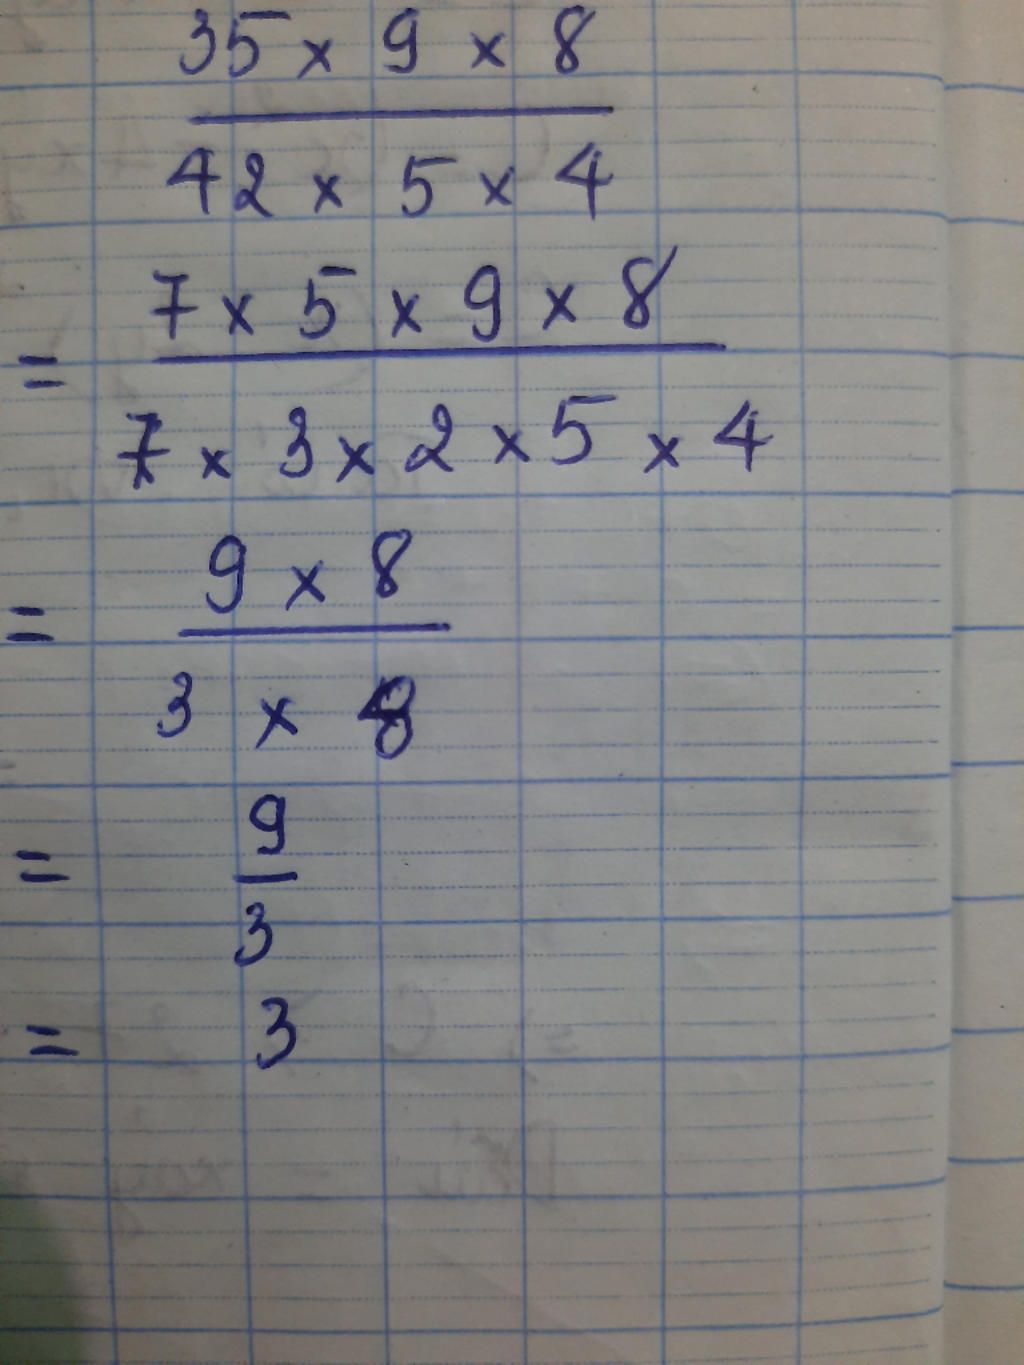 35 × 9 × 8
42 × 5 × 4
7 × 5 × 9 × 8
=
7 × 3 × 2 × 5 × 4
9 × 8
=
3 × 8
9
=
3
= 3